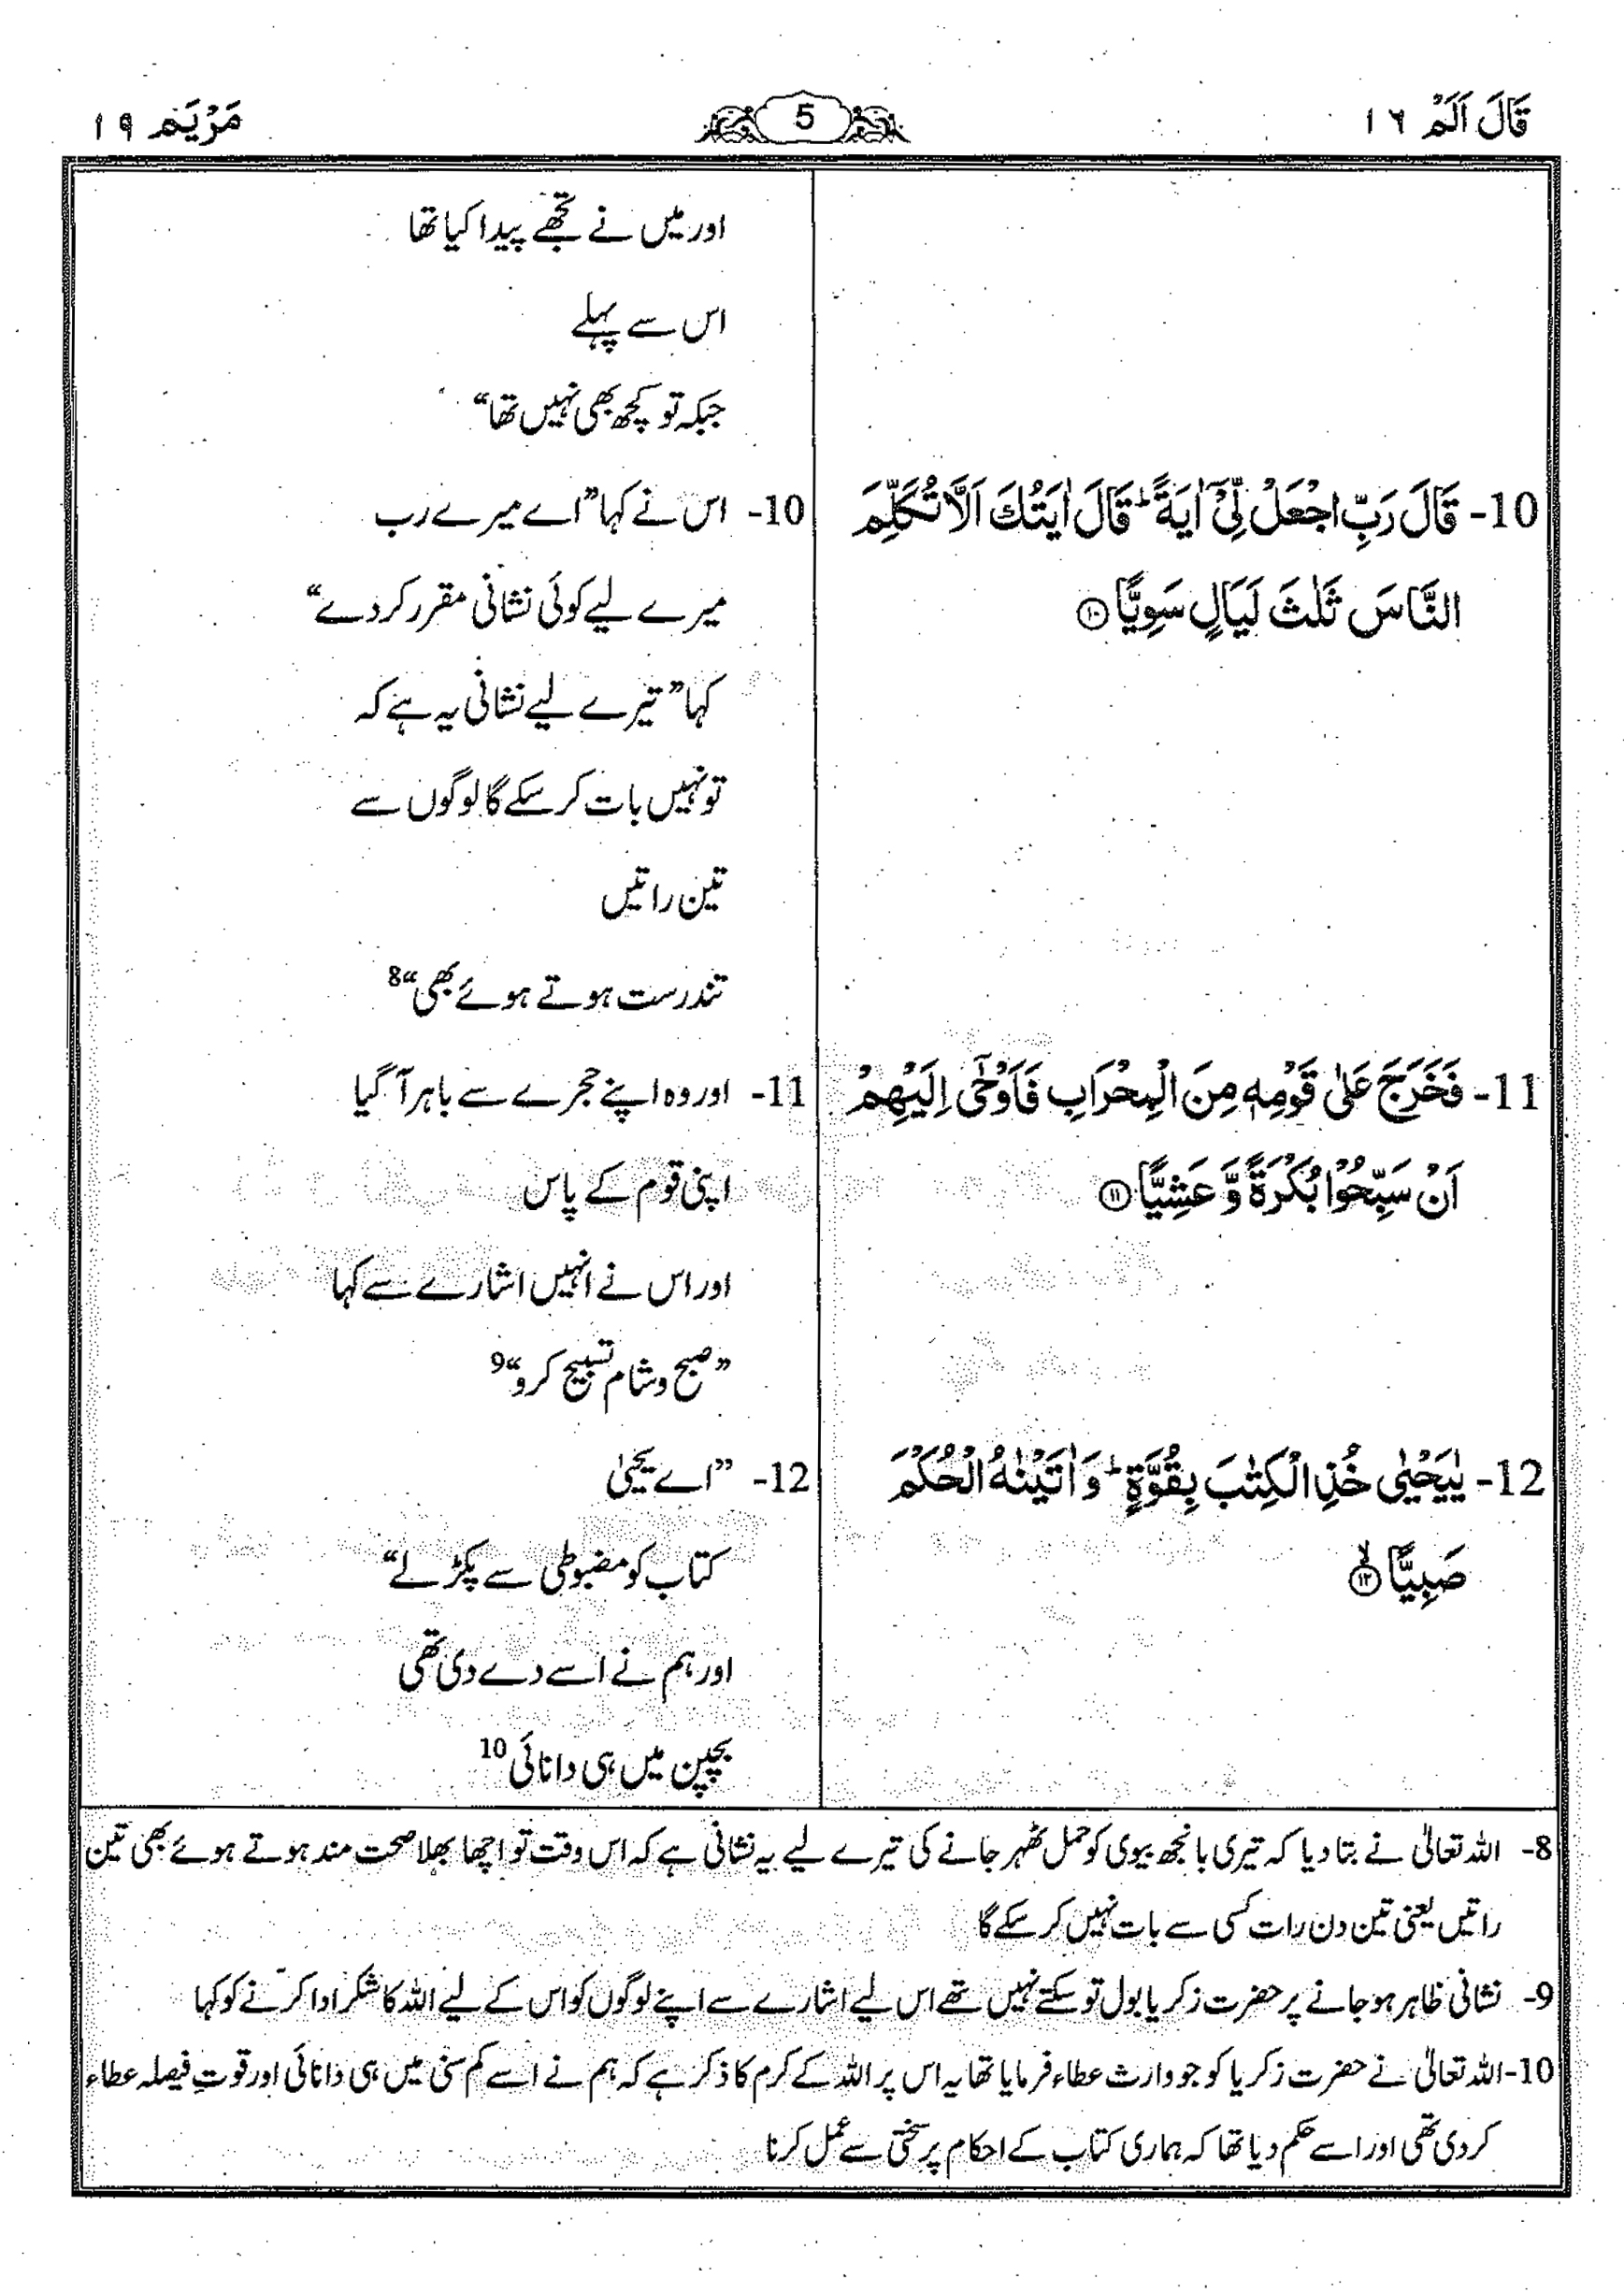 قَالَ اَلَمْ ١٦
5
مَرْيَم ١٩
اور میں نے تجھے پیدا کیا تھا
اس سے پہلے
جبکہ تو کچھ بھی نہیں تھا“
10- قَالَ رَبِّ اجْعَلْ لِّیْۤ اٰیَةً ؕ قَالَ اٰیَتُكَ اَلَّا تُكَلِّمَ
النَّاسَ ثَلٰثَ لَیَالٍ سَوِیًّا ﴿١٠﴾
10- اس نے کہا ”اے میرے رب
میرے لیے کوئی نشانی مقرر کر دے“
کہا ”تیرے لیے نشانی یہ ہے کہ
تو نہیں بات کر سکے گا لوگوں سے
تین راتیں
تندرست ہوتے ہوئے بھی“ 8
11- فَخَرَجَ عَلٰى قَوْمِهٖ مِنَ الْمِحْرَابِ فَاَوْحٰۤى اِلَیْهِمْ
اَنْ سَبِّحُوْا بُكْرَةً وَّ عَشِیًّا ﴿١١﴾
11- اور وہ اپنے حجرے سے باہر آ گیا
اپنی قوم کے پاس
اور اس نے انہیں اشارے سے کہا
”صبح و شام تسبیح کرو“ 9
12- یٰیَحْیٰى خُذِ الْكِتٰبَ بِقُوَّةٍ ؕ وَ اٰتَیْنٰهُ الْحُكْمَ
صَبِیًّا ﴿١٢﴾ۙ
12- ”اے یحییٰ
کتاب کو مضبوطی سے پکڑ لے“
اور ہم نے اسے دے دی تھی
بچپن میں ہی دانائی 10
8- اللہ تعالیٰ نے بتا دیا کہ تیری بانجھ بیوی کو حمل ٹھہر جانے کی تیرے لیے یہ نشانی ہے کہ اس وقت تو اچھا بھلا صحت مند ہوتے ہوئے بھی تین
راتیں یعنی تین دن رات کسی سے بات نہیں کر سکے گا
9- نشانی ظاہر ہو جانے پر حضرت زکریا بول تو سکتے نہیں تھے اس لیے اشارے سے اپنے لوگوں کو اس کے لیے اللہ کا شکر ادا کرنے کو کہا
10- اللہ تعالیٰ نے حضرت زکریا کو جو وارث عطاء فرمایا تھا یہ اس پر اللہ کے کرم کا ذکر ہے کہ ہم نے اسے کم سنی میں ہی دانائی اور قوتِ فیصلہ عطاء
کر دی تھی اور اسے حکم دیا تھا کہ ہماری کتاب کے احکام پر سختی سے عمل کرنا